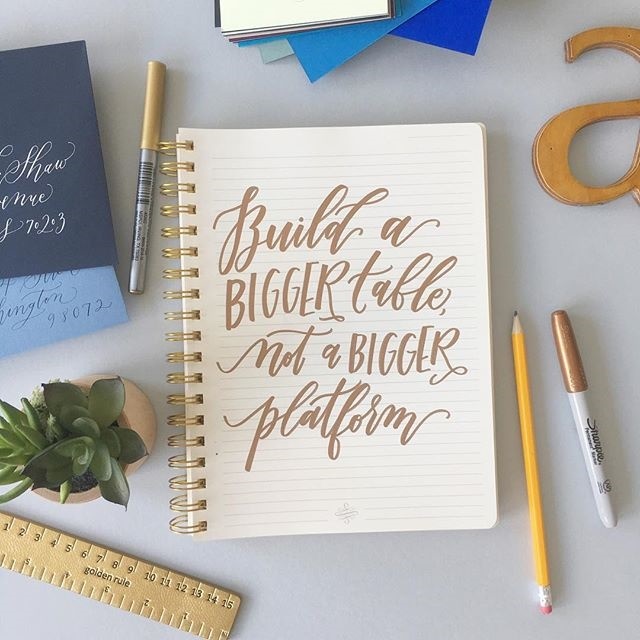 Shaw
70203
98072
Build a
BIGGER table,
not a BIGGER
platform
Sharpie
1 2 3 4 5 6 7 8 9 10 11 12 13 14 15
golden rule